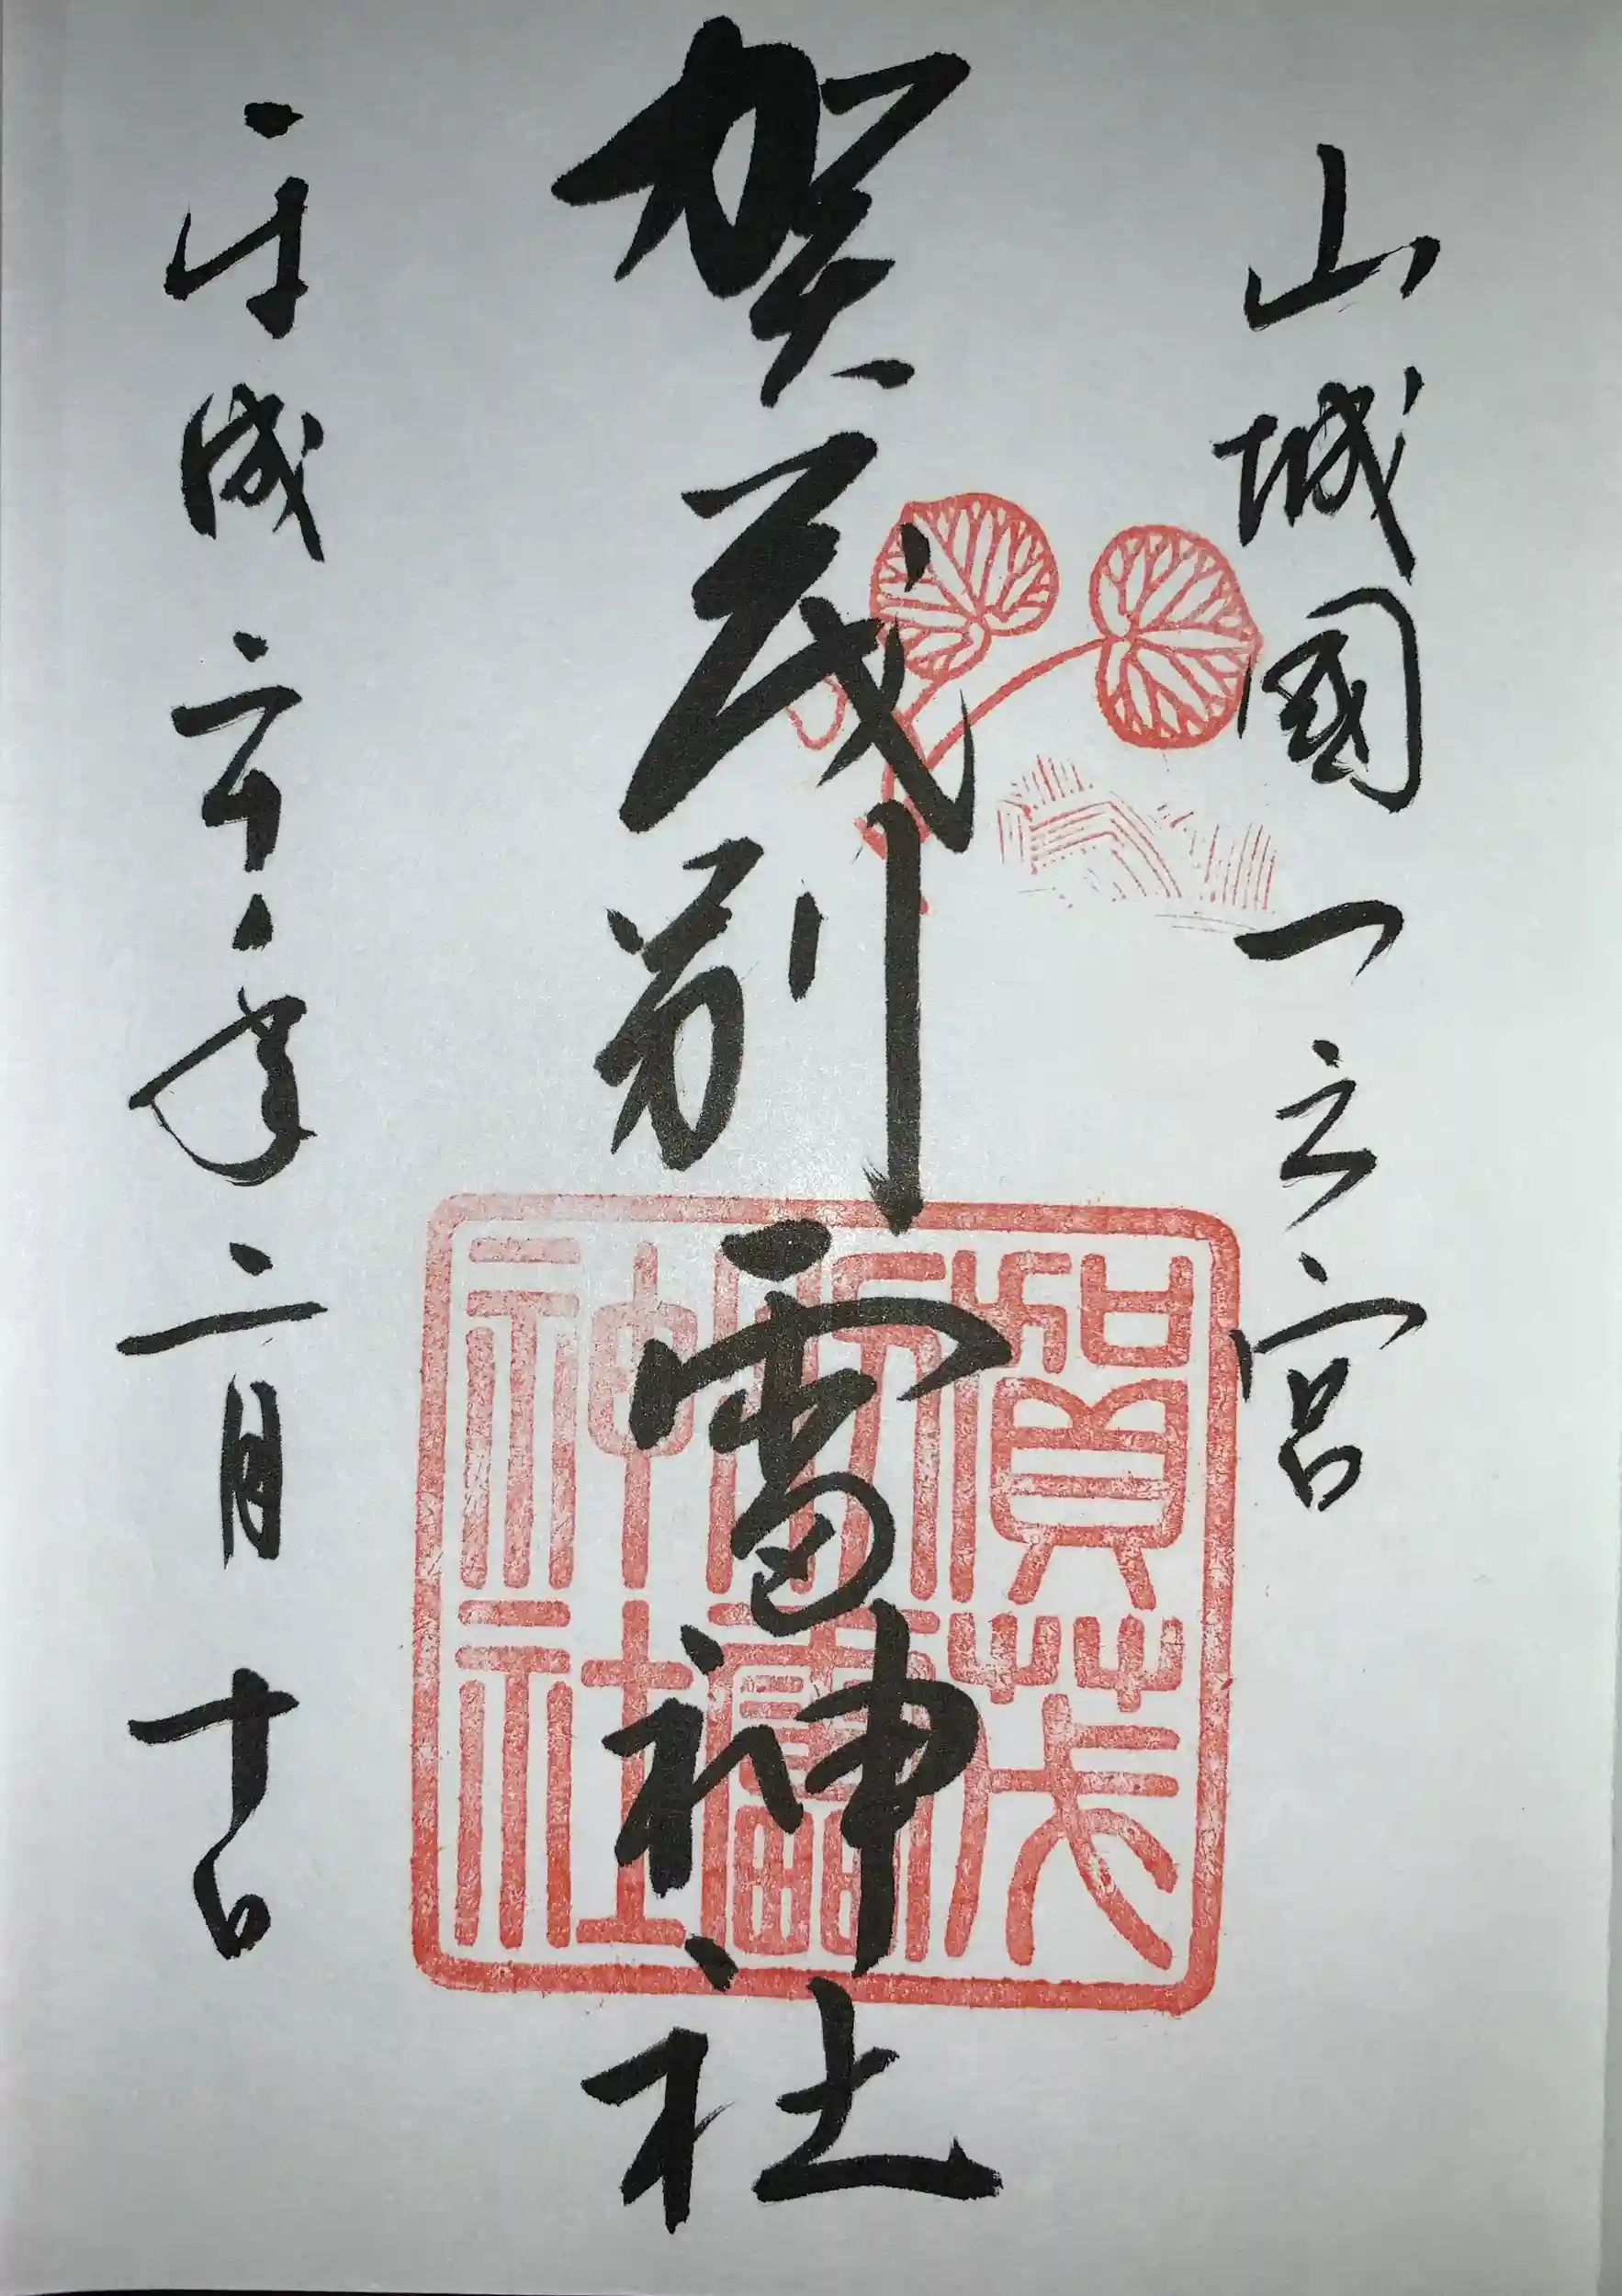 山城國一之宮
賀茂別雷神社
平成年二月十日
賀茂
別雷
神社